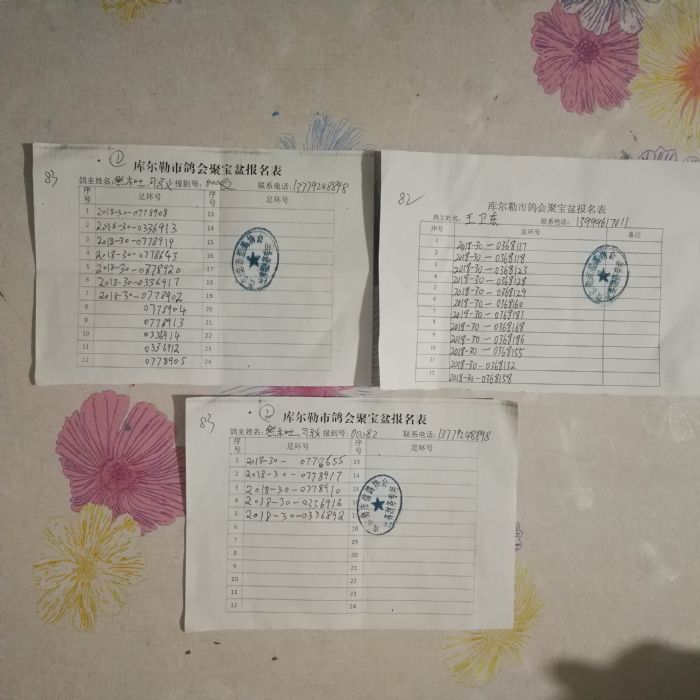 83
①
库尔勒市鸽会聚宝盆报名表
鸽主姓名: 报到号: 00082 联系电话: 13779248898
序号 足环号 序号 足环号
1 2018-30-0778908 13
2 2018-30-0336913 14
3 2018-30-0778919 15
4 2018-30-0778643 16
5 2018-30-0778920 17
6 2018-30-0336917 18
7 2018-30-0778902 19
8 0778904 20
9 0778913 21
10 0336914 22
11 0336912 23
12 0778905 24
82
库尔勒市鸽会聚宝盆报名表
鸽主姓名: 王卫东 联系电话: 13999617811
序号 足环号 备注
1 2018-30-0368117
2 2018-30-0368118
3 2018-30-0368123
4 2018-30-0368128
5 2018-30-0368129
6 2018-30-0368160
7 2018-30-0368181
8 2018-30-0368168
9 2018-30-0368186
10 2018-30-0368155
11 2018-30-0368132
12 2018-30-0368158
83
②
库尔勒市鸽会聚宝盆报名表
鸽主姓名: 报到号: 00082 联系电话: 13779248898
序号 足环号 序号 足环号
1 2018-30-0778655 13
2 2018-30-0778917 14
3 2018-30-0778910 15
4 2018-30-0336916 16
5 2018-30-0336892 17
6 18
7 19
8 20
9 21
10 22
11 23
12 24